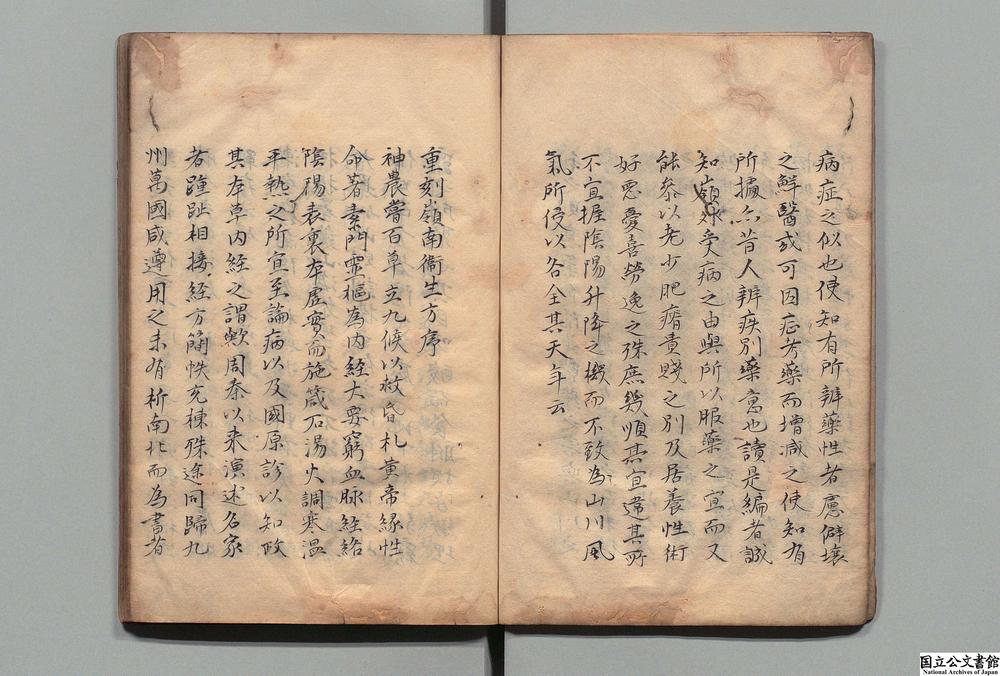 病症之似也使知有所辨藥性者慮僻壤
之鮮醫或可因症考藥而增減之使知有
所據亦昔人辨疾別藥意也讀是編者誠
知嶺外受病之由與所以服藥之宜而又
能參以老少肥瘠貴賤之別及居養性術
好惡愛喜勞逸之殊庶幾順其宜違其所
不宜握陰陽升降之機而不致為山川風
氣所侵以各全其天年云
重刻嶺南衞生方序
神農嘗百草立九候以救昏札黄帝緣性
命著素門靈樞為內經大要窮血脉經絡
陰陽表裏本虛實而施箴石湯火調寒温
平熱之所宜至論病以及國原診以知政
其本草內經之謂歟周秦以来演述名家
者踵趾相接經方簡帙充棟殊途同歸九
州萬國咸遵用之未有析南北而為書者
国立公文書館
National Archives of Japan